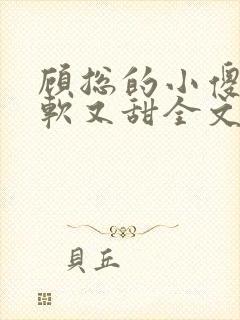 顾总的小傻
軟又甜全文
貝丘